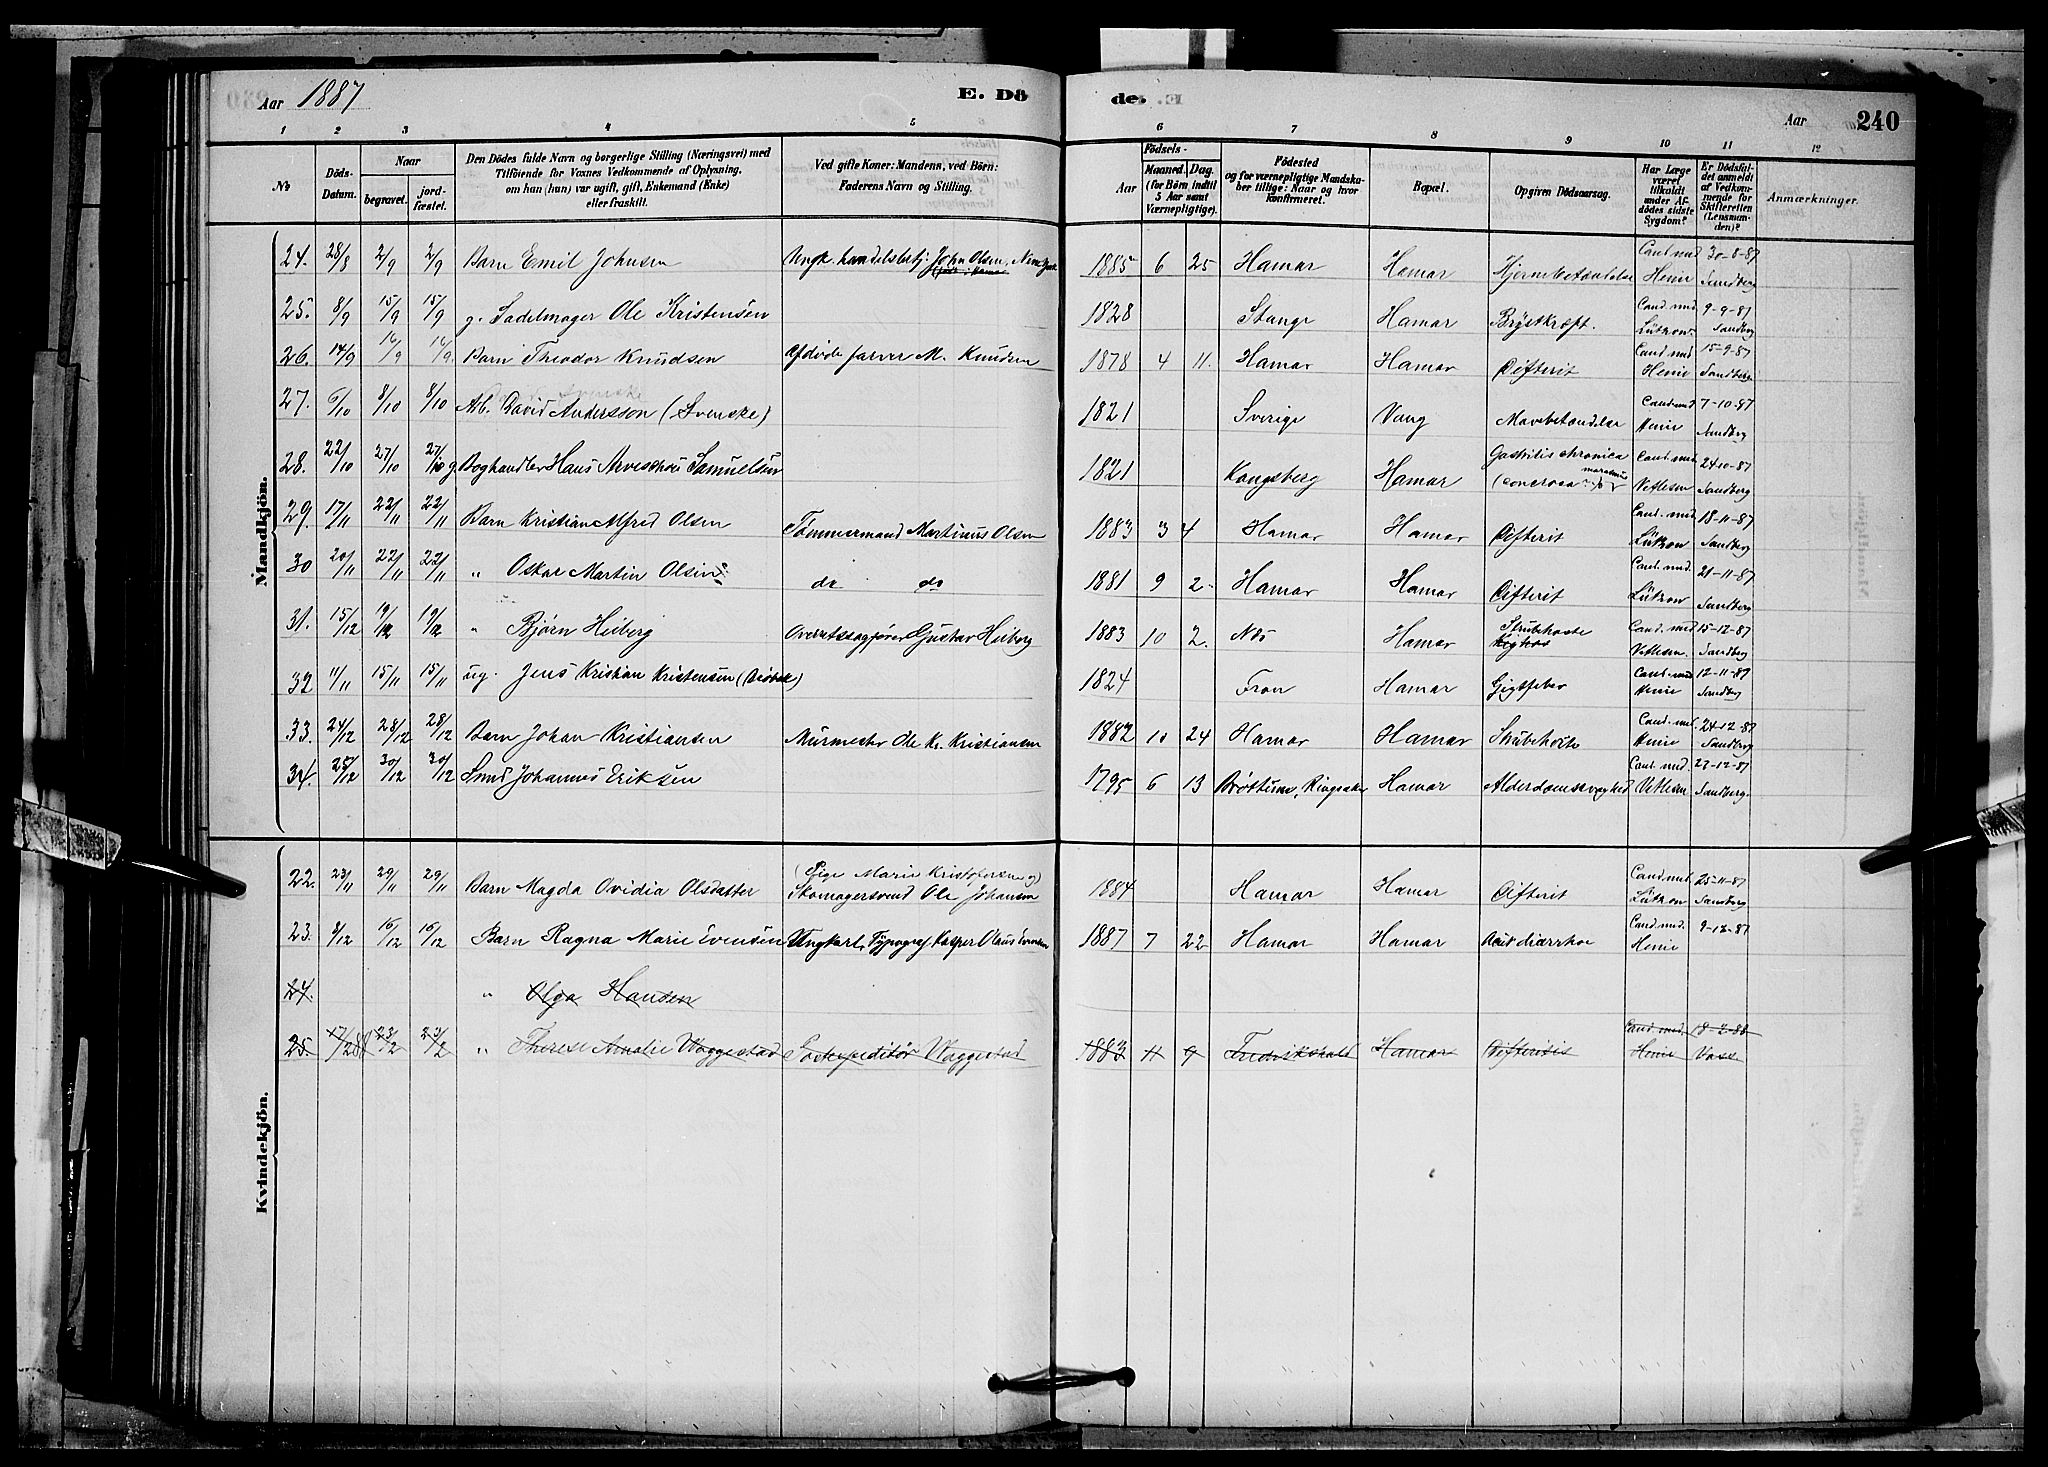 Aar 1887 E. Dö de. Aar 240
1 2 3 4 5 6 7 8 9 10 11 12
No Döds-Datum. Naar begravet. jord-fæstet. Den Dödes fulde Navn og borgerlige Stilling (Næringsvei) med Tilföiende for Voxnes Vedkommende af Oplysning, om han (hun) var ugift, gift, Enkemand (Enke) eller fraskilt. Ved gifte Koner: Mandens, ved Börn: Faderens Navn og Stilling. Aar Födsels- Maaned. Dag. (for Börn indtil 5 Aar samt Værnepligtige). Födested og for værnepligtige Mandskaber tillige: Naar og hvor konfirmeret. Bopæl. Opgiven Dödsaarsag. Har Læge været tilkaldt under Afdödes sidste Sygdom? Er Dödsfaldet anmeldt af Vedkommende for Skifteretten (Lensmanden)? Anmærkninger.
Mandkjön.
24. 28/8 2/9 2/9 Barn Emil Johnsen Ungk. handelsbetj. John Olsen, 1885 6 25 Hamar Hamar Hjernebetændelse Cand. med Henie 30-8-87 Sandberg
25. 8/9 15/9 15/9 g. Sadelmager Ole Kristensen 1828 Stange Hamar Brystkræft. Cand. med Lützow 9-9-87 Sandberg
26. 14/9 16/9 16/9 Barn Theodor Knudsen Afdöde farver M. Knudsen 1878 4 11. Hamar Hamar Difterit Cand. med Henie 15-9-87 Sandberg
27. 6/10 8/10 8/10 Arb. David Andersson (Svenske) 1821 Sverige Vang Mavebetændelse Cand. med Henie 7-10-87 Sandberg
28. 22/10 27/10 27/10 g Boghandler Hans Arveschou Samuelsen 1821 Kongsberg Hamar Gastritis chronica marasmus Cand. med Vetlesen 24-10-87 Sandberg
29. 17/11 22/11 22/11 Barn Kristian Alfred Olsen Tømmermand Martinus Olsen 1883 3 4 Hamar Hamar Difterit Cand. med Lützow 18-11-87 Sandberg
30 20/11 22/11 22/11 " Oskar Martin Olsen do do 1881 9 2 Hamar Hamar Difterit Cand. med. Lützow 21-11-87 Sandberg
31. 15/12 19/12 19/12 " Bjørn Heiberg Overretssagfører Gustav Heiberg 1883 10 2. Næs Hamar Strubehoste Cand. med Vetlesen. 15-12-87 Sandberg
32 11/11 15/11 15/11 ug. Jens Kristian Kristensen 1824 Fron Hamar Gigtfeber Cand. med Henie 12-11-87 Sandberg
33. 24/12 28/12 28/12 Barn Johan Kristiansen Murmester Ole K. Kristiansen 1882 10 24 Hamar Hamar Strubehoste Cand. med. Henie 24-12-87 Sandberg
34. 25/12 30/12 30/12 Smed Johannes Eriksen 1795 6 13 Brøttum, Ringsaker Hamar Alderdomssvaghed Cand. med. Vetlesen 27-12-87 Sandberg.
Kvindekjön.
22. 23/11 29/11 29/11 Barn Magda Ovidia Olsdatter (Pige Marie Kristofersen og) Skomagersvend Ole Johansen 1884 Hamar Hamar Difterit Cand. med. Lützow 25-11-87 Sandberg
23. 9/12 16/12 16/12 Barn Ragna Marie Evensen Ungkarl, Typograf Kasper Olaus Evensen 1887 7 22 Hamar Hamar Acut diarrhoe Cand. med. Henie 9-12-87
24. " Olga Hansen
25. 17/2 88 23/2 23/2 " Therese Amalie Waggestad Postexpeditör Waggestad 1883 11 9 Fredrikshald Hamar Difteritis Cand. med. Henie 18-2-88